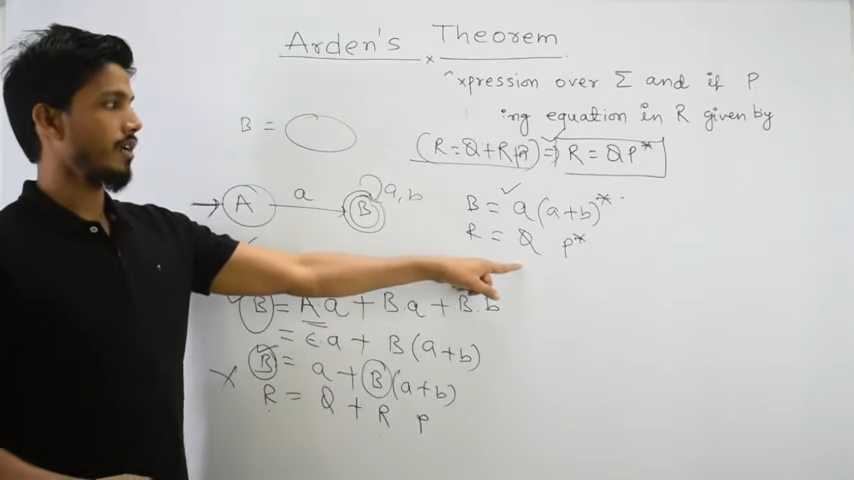 Arden's Theorem
xpression over Σ and if P
ing equation in R given by
(R = Q + RP) ⇒ R = QP*
B =
A a B a,b
B = a(a+b)*
R = Q P*
B = A.a + B.a + B.b
= ε.a + B(a+b)
B = a + B(a+b)
R = Q + R P